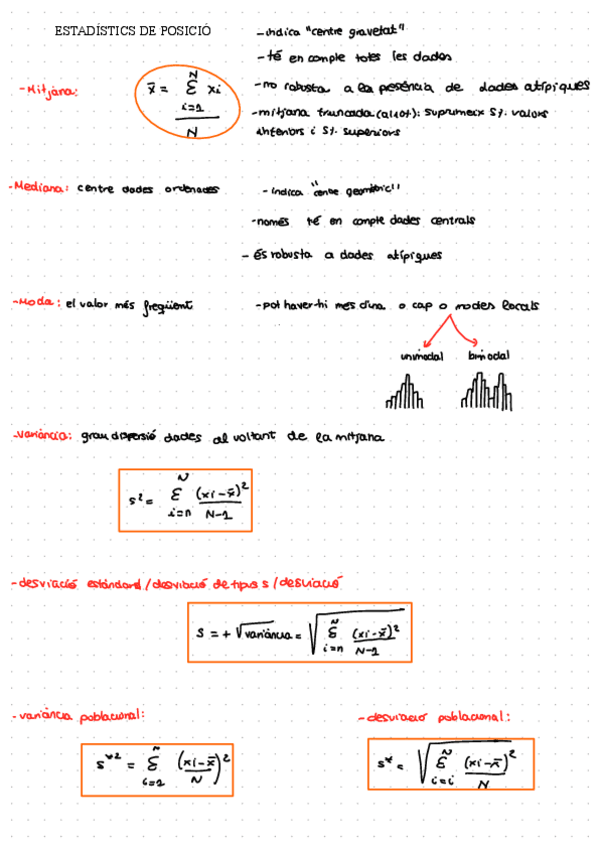 ESTADÍSTICS DE POSICIÓ
-indica "centre gravetat"
-té en compte totes les dades
-Mitjana: x̄ = Σ_{i=1}^{N} xi / N
-no robusta a la presència de dades atípiques
-mitjana truncada (al 10%): suprimeix 5%. valors
inferiors i 5%. superiors
-Mediana: centre dades ordenades
-indica "centre geomètric"
-només té en compte dades centrals
-és robusta a dades atípiques
-Moda: el valor més freqüent
-pot haver-hi mes d'una o cap o modes locals
unimodal bimodal
-variància: grau dispersió dades al voltant de la mitjana
s² = Σ_{i=n}^{N} (xi-x̄)² / N-1
-desviació estàndard/desviació de tipus s/desviació
s = + √variància = √ Σ_{i=n}^{N} (xi-x̄)² / N-1
-variància poblacional:
-desviació poblacional:
s*² = Σ_{i=1}^{N} (xi-x̄ / N)²
s* = √ Σ_{i=i}^{N} (xi-x̄)² / N